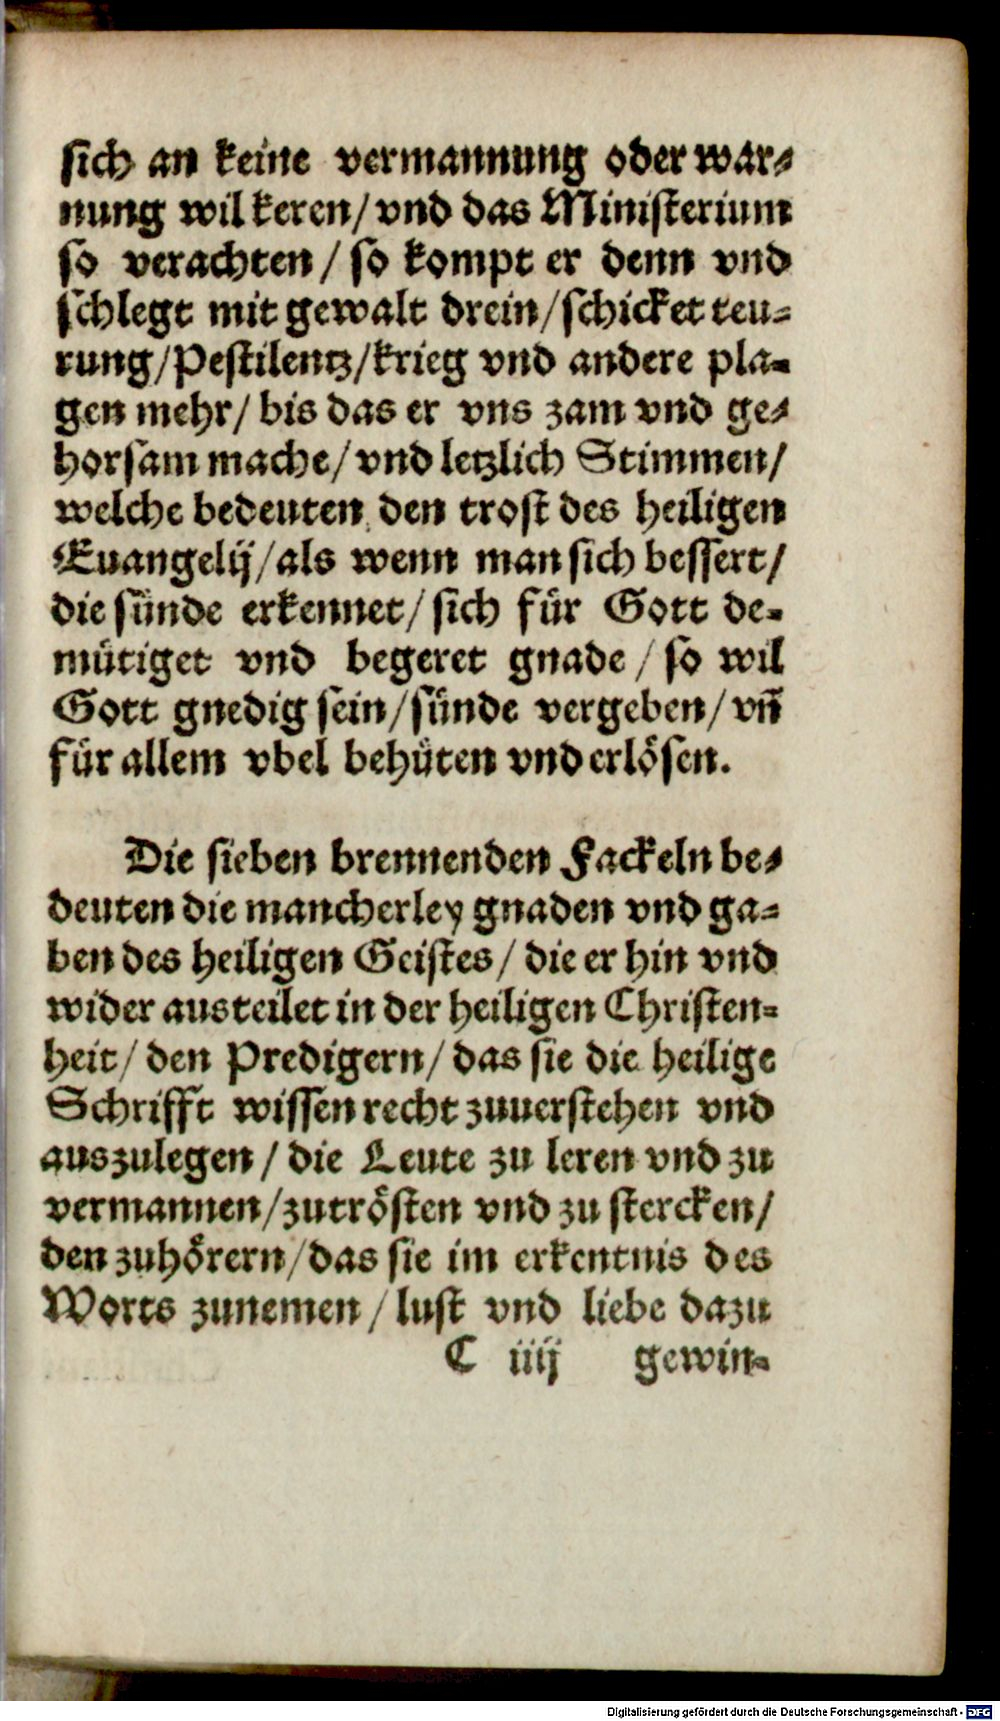 sich an keine vermannung oder war⸗
nung wil keren/ vnd das Ministerium
so verachten/ so kompt er denn vnd
schlegt mit gewalt drein/ schicket teu⸗
rung/ Pestilentz/ krieg vnd andere pla⸗
gen mehr/ bis das er vns zam vnd ge⸗
horsam mache/ vnd letzlich Stimmen/
welche bedeuten den trost des heiligen
Euangelij/ als wenn man sich bessert/
die sünde erkennet/ sich für Gott de⸗
mütiget vnd begeret gnade/ so wil
Gott gnedig sein/ sünde vergeben/ vñ
für allem vbel behüten vnd erlösen.
Die sieben brennenden Fackeln be⸗
deuten die mancherley gnaden vnd ga⸗
ben des heiligen Geistes/ die er hin vnd
wider austeilet in der heiligen Christen⸗
heit/ den Predigern/ das sie die heilige
Schrifft wissen recht zuuerstehen vnd
auszulegen/ die Leute zu leren vnd zu
vermannen/ zu trösten vnd zu stercken/
den zuhörern/ das sie im erkentnis des
Worts zunemen/ lust vnd liebe dazu
C iiij gewin⸗
Digitalisierung gefördert durch die Deutsche Forschungsgemeinschaft - DFG